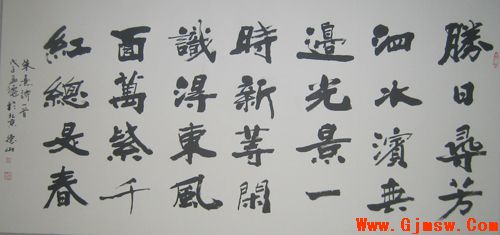 勝日尋芳
泗水濱無
邊光景一
時新等閑
識得東風
面萬紫千
紅總是春
朱熹詩一首
Www.Gjmsw.Com